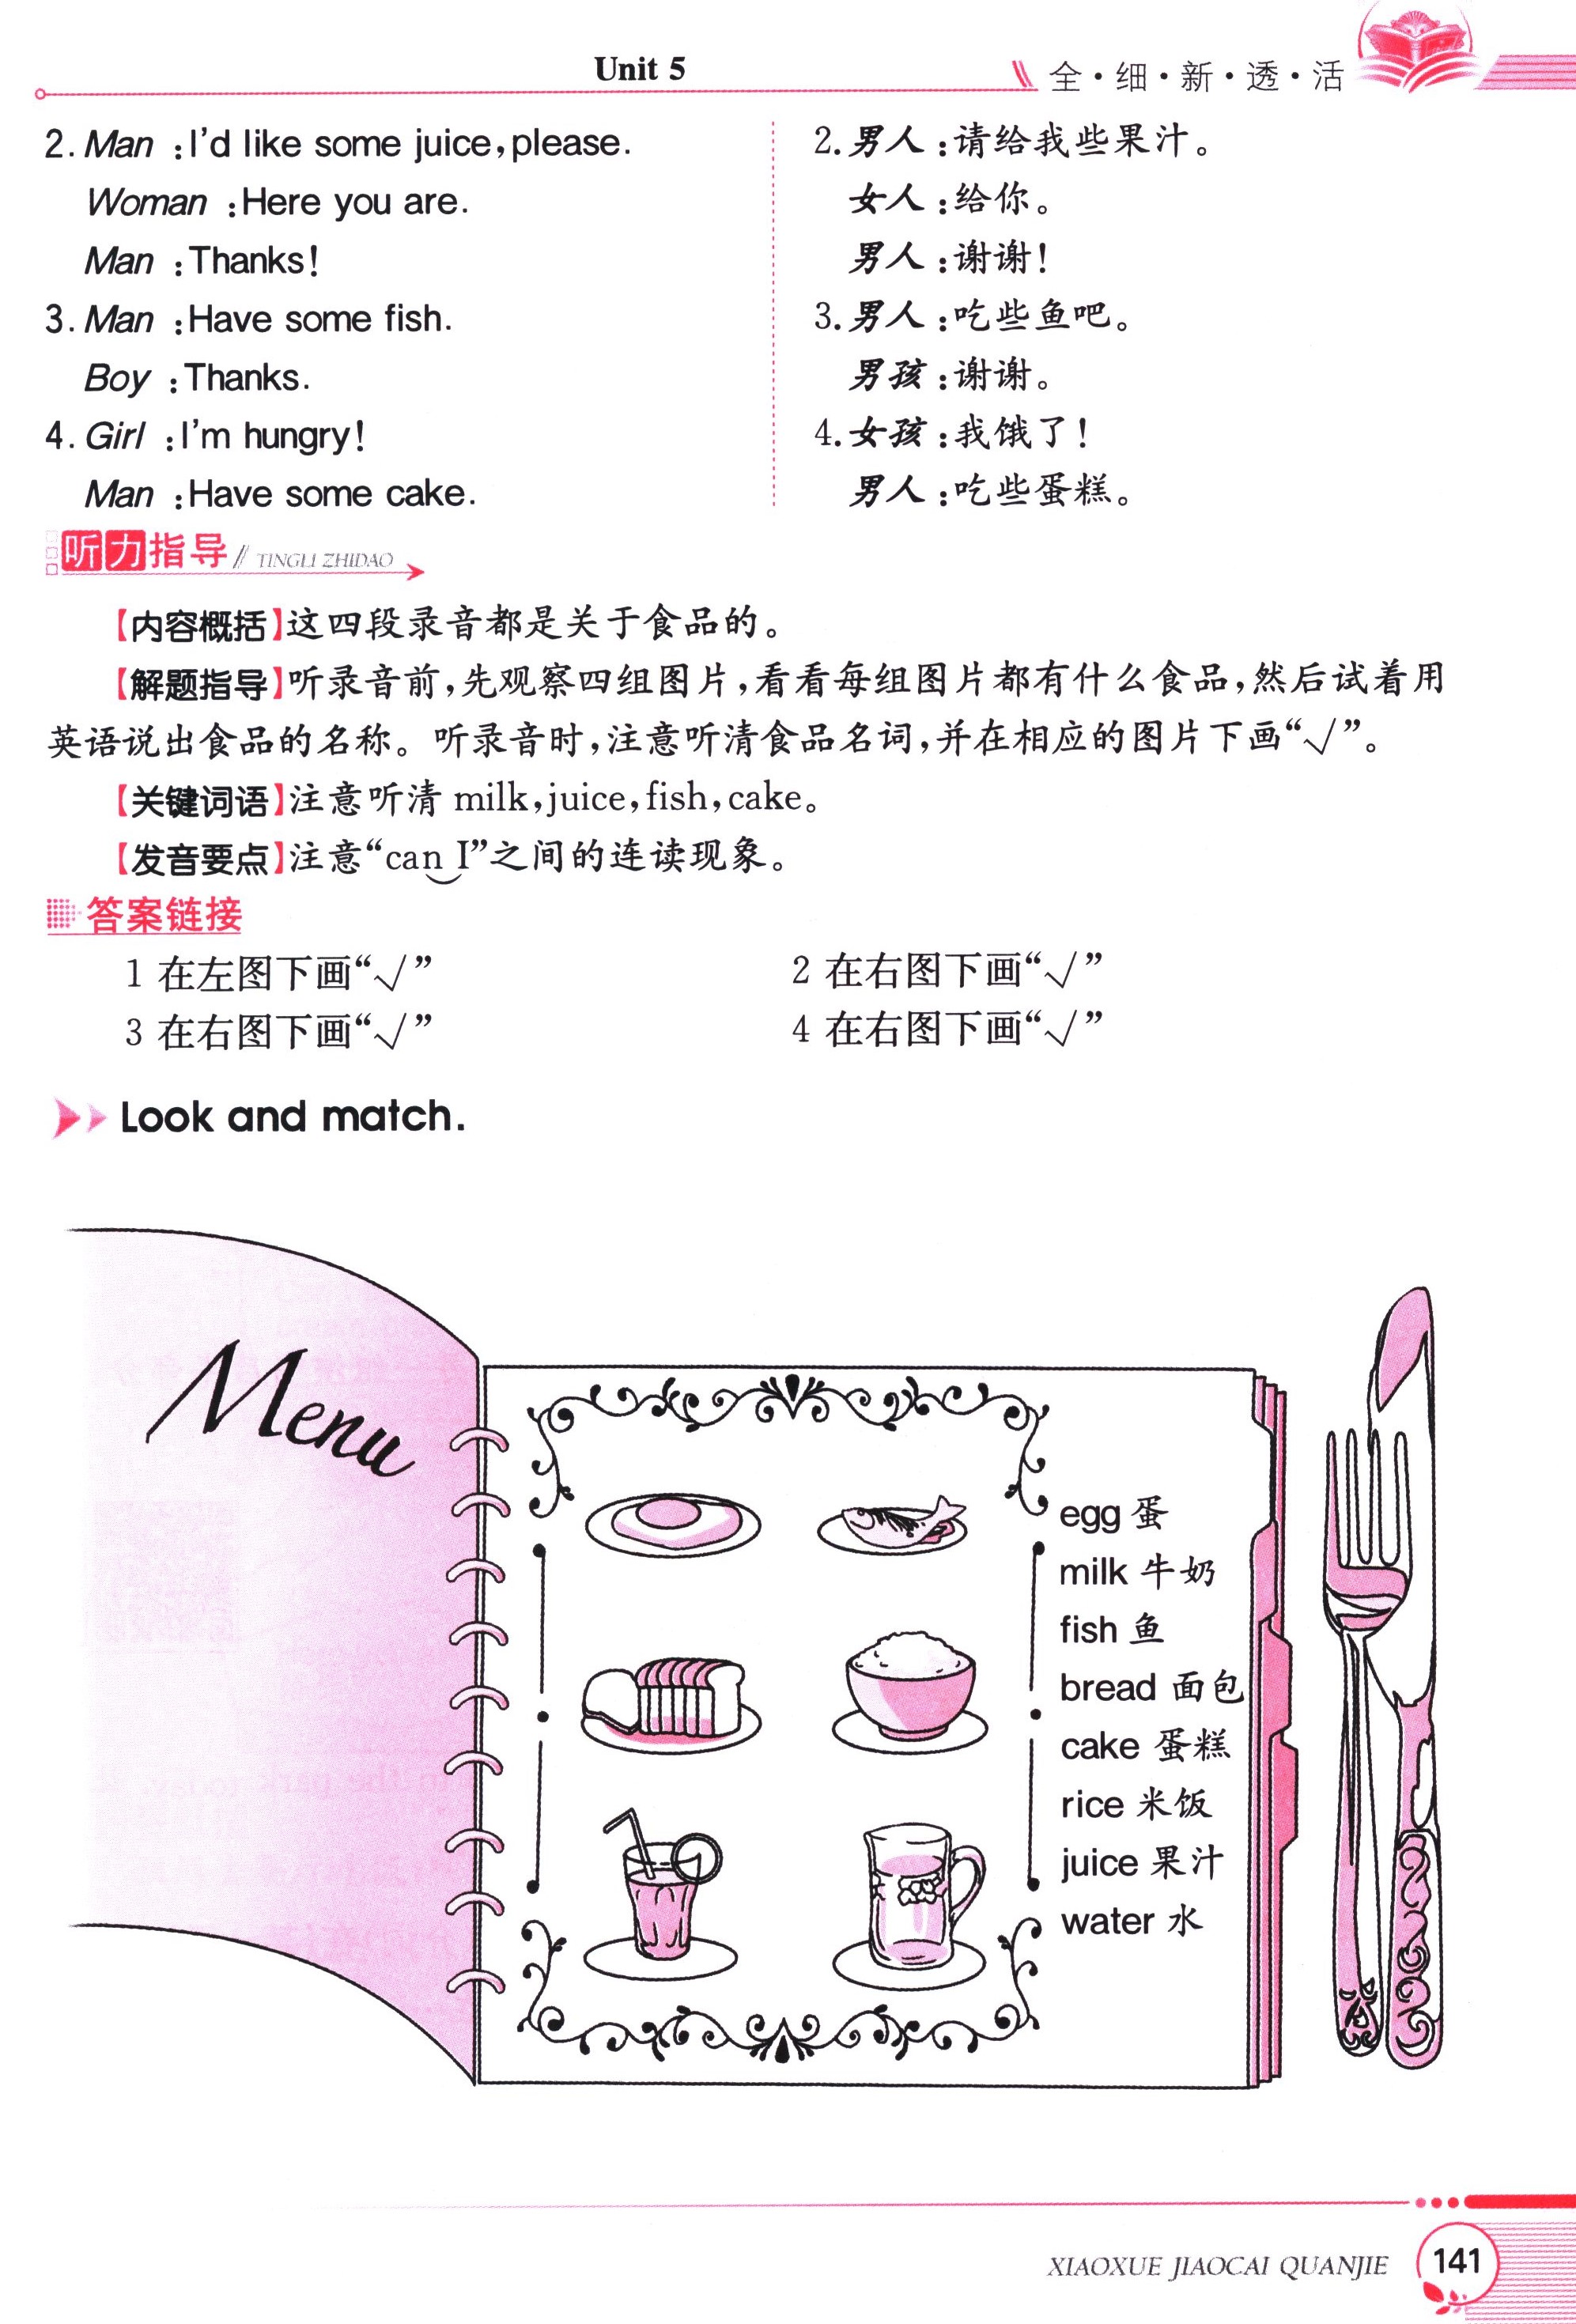 Unit 5
全·细·新·透·活
2. Man :I'd like some juice,please.
Woman :Here you are.
Man :Thanks!
3. Man :Have some fish.
Boy :Thanks.
4. Girl :I'm hungry!
Man :Have some cake.
2.男人:请给我些果汁。
女人:给你。
男人:谢谢!
3.男人:吃些鱼吧。
男孩:谢谢。
4.女孩:我饿了!
男人:吃些蛋糕。
听力指导 // TINGLI ZHIDAO
【内容概括】这四段录音都是关于食品的。
【解题指导】听录音前,先观察四组图片,看看每组图片都有什么食品,然后试着用
英语说出食品的名称。听录音时,注意听清食品名词,并在相应的图片下画“√”。
【关键词语】注意听清 milk,juice,fish,cake。
【发音要点】注意“can I”之间的连读现象。
答案链接
1 在左图下画“√”
2 在右图下画“√”
3 在右图下画“√”
4 在右图下画“√”
Look and match.
Menu
egg 蛋
milk 牛奶
fish 鱼
bread 面包
cake 蛋糕
rice 米饭
juice 果汁
water 水
XIAOXUE JIAOCAI QUANJIE
141